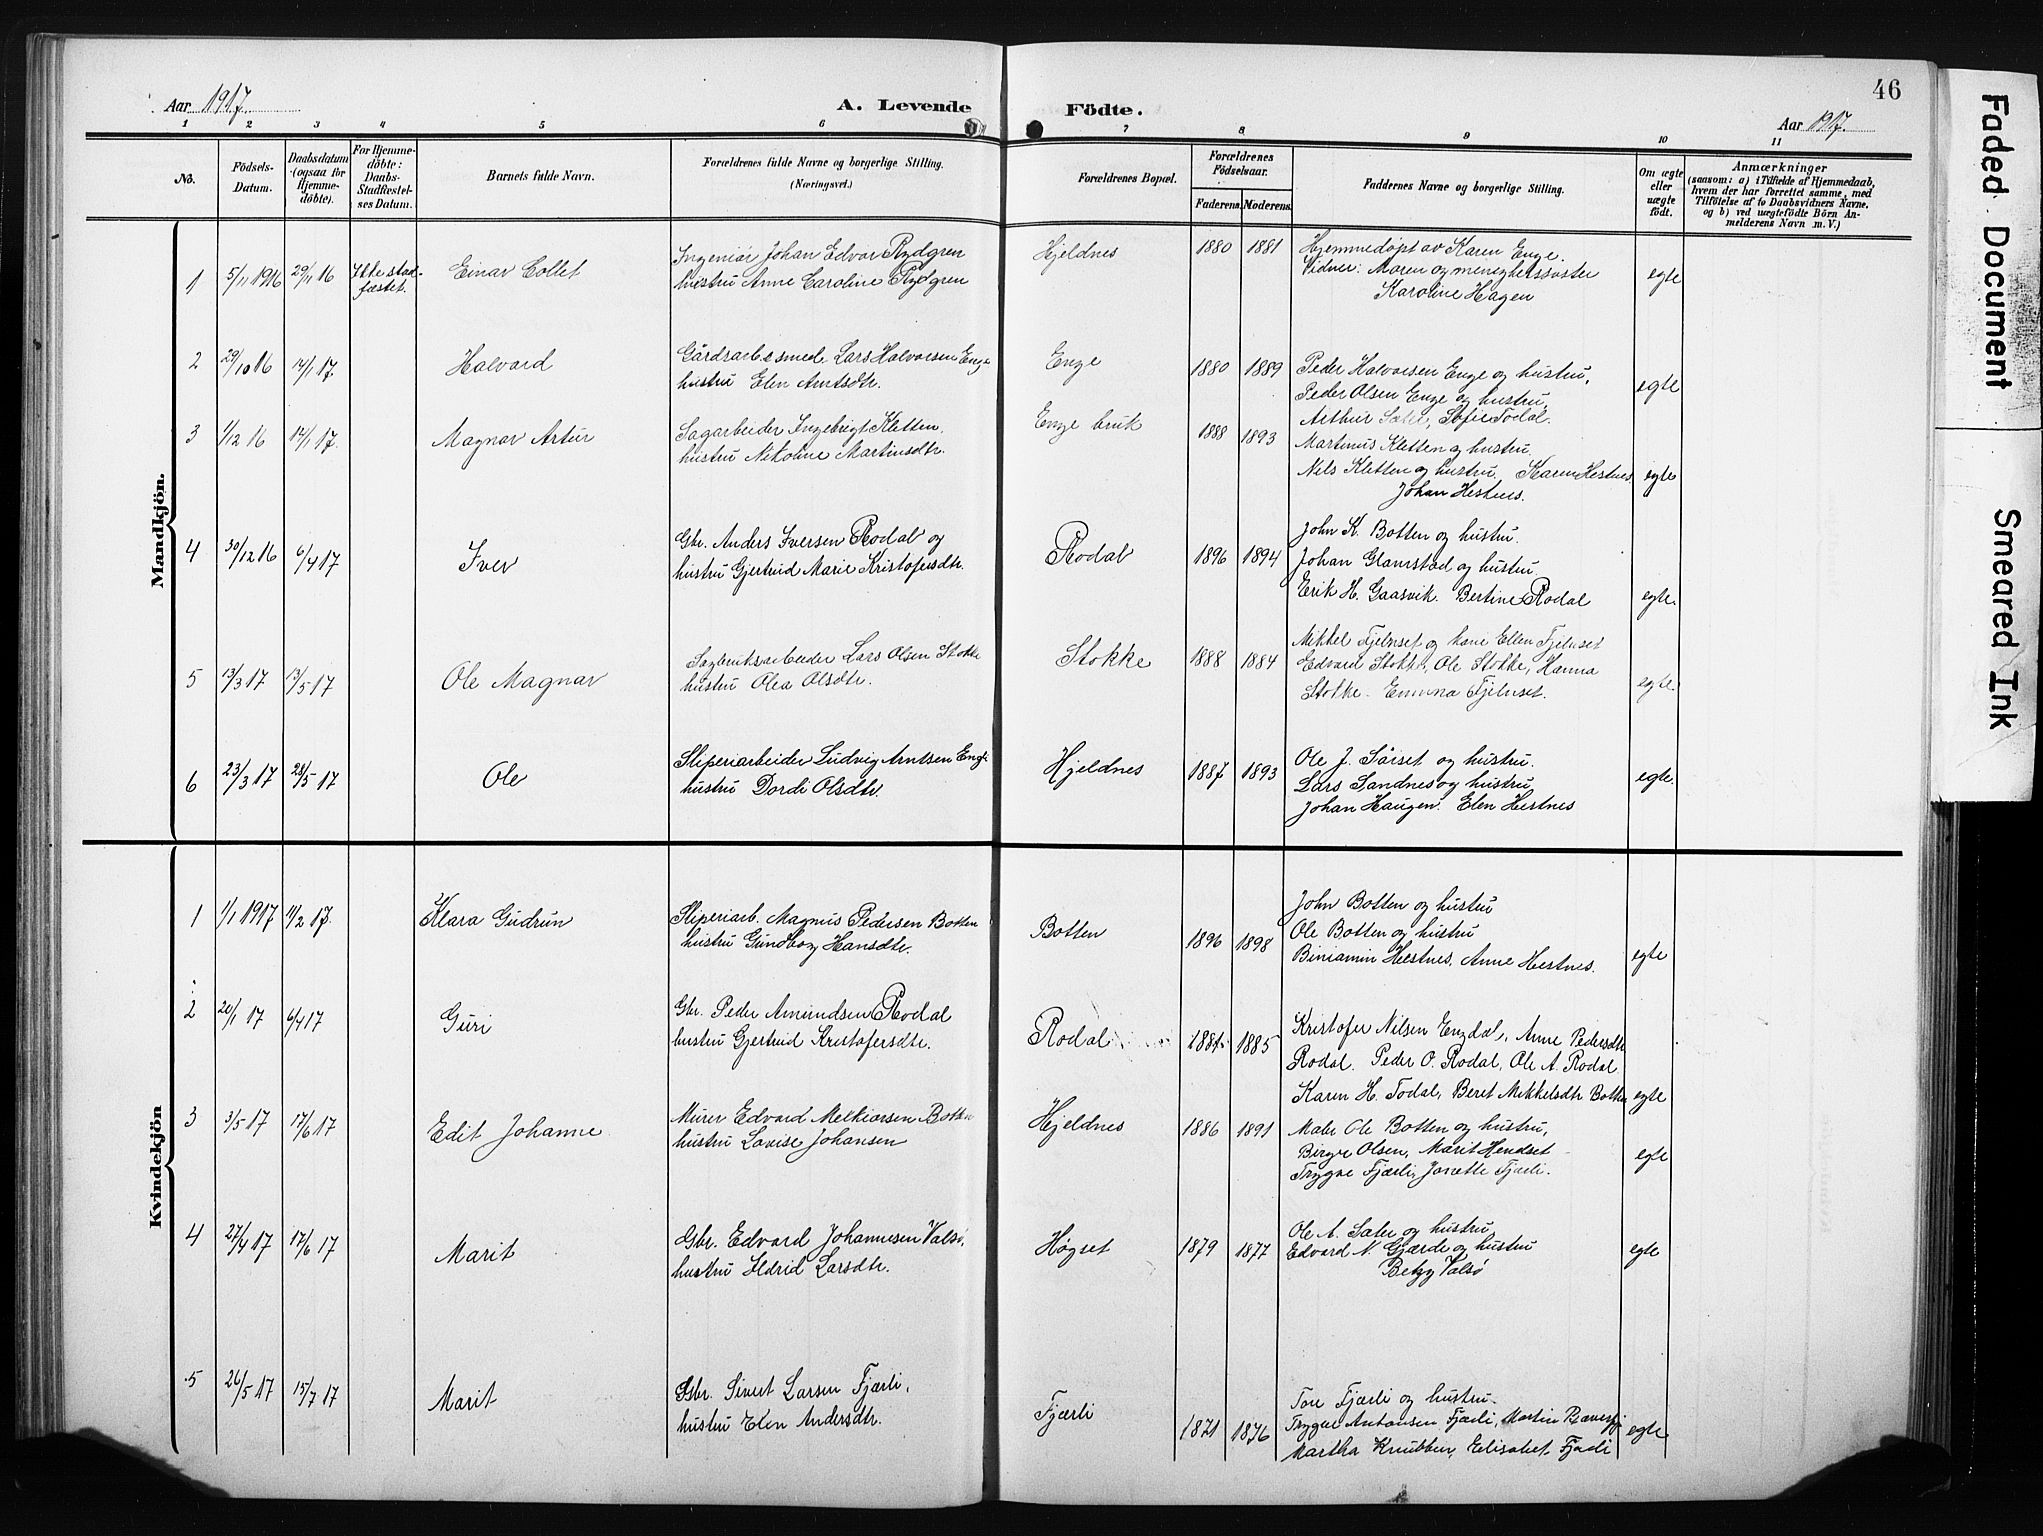 Aar 1917.
A. Levende
Födte.
46
Aar 1917.
1 2 3 4 5 6 7 8 9 10 11
No.
Födsels-Datum.
Daabsdatum (ogsaa for Hjemmedöbte).
For Hjemmedöbte: Daabs-Stadfæstelses Datum.
Barnets fulde Navn.
Forældrenes fulde Navne og borgerlige Stilling.
(Næringsvei.)
Forældrenes Bopæl.
Forældrenes Födselsaar.
Faderens. Moderens.
Faddernes Navne og borgerlige Stilling.
Om ægte eller uægte födt.
Anmærkninger
(saasom: a) i Tilfælde af Hjemmedaab,
hvem der har forrettet samme, med
Tilföielse af to Daabsvidners Navne,
og b) ved uægtefödte Börn An-
melderens Navn m. V.)
Mandkjön.
1 5/11 1916 29/11 16 Ikke stad-fæstet. Einar Collet
Ingeniør Johan Edvar Rydgren
hustru Anne Caroline Rydgren
Hjeldnes 1880 1881
Hjemmedøpt av Karen Enge.
Vidner: Moren og menighetssøster
Karoline Hagen
egte
2 29/10 16 14/1 17. Halvard
Gårdsarb. & smed Lars Halvorsen Enge
hustru Elen Arntsdtr.
Enge 1880 1889
Peder Halvorsen Enge og hustru,
Peder Olsen Enge og hustru,
Arthur Sæter, Sofie Todal.
egte
3 1/12 16 14/1 17. Magnar Artur
Sagarbeider Ingebrigt Kletten.
hustru Nikoline Martinsdtr.
Enge bruk 1888 1893
Martinus Kletten og hustru.
Nils Kletten og hustru. Karen Hestnes
Johan Hestnes.
egte
4 30/12 16 6/4 17 Iver
Gbr. Anders Iversen Rodal og
hustru Gjertrud Marie Kristofersdtr.
Rodal 1896 1894
John K. Botten og hustru.
Johan Glamstad og hustru.
Erik H. Gaasvik. Bertine Rodal
egte.
5 13/3 17 13/5 17 Ole Magnar
Sagbruksarbeider Lars Olsen Stokke
hustru Olea Olsdtr.
Stokke 1888 1884
Mikkel Fjelnset og kone Ellen Fjelnset
Edvard Stokke, Ole Stokke, Hanna
Stokke. Emma Fjelnset.
egte.
6 23/3 17 28/5 17 Ole
Sliperiarbeider Ludvig Arntsen Enge
hustru Dordi Olsdtr.
Hjeldnes 1887 1893
Ole J. Sörset og hustru.
Lars Sandnes og hustru
Johan Haugen. Elen Hestnes
egte.
Kvindekjön
1 1/1 1917 11/2 17. Klara Gudrun
Sliperiarb. Magnus Pedersen Botten
hustru Gundborg Hansdtr.
Botten 1896 1898
John Botten og hustru
Ole Botten og hustru
Biniamin Hestnes, Anne Hestnes.
egte
2 20/1 17 6/4 17 Guri
Gbr. Peder Amundsen Rodal
hustru Gjertrud Kristofersdtr.
Rodal 1881 1885
Kristofer Nilsen Engdal, Anne Pedersdtr
Rodal. Peder O. Rodal, Ole A. Rodal
Karen H. Todal, Beret Mikkelsdtr Botten
egte
3 3/5 17 17/6 17 Edit Johanne
Murer Edvard Melkiorsen Botten
hustru Lovise Johansen
Hjeldnes 1886 1891
Maler Ole Botten og hustru,
Birger Olsen, Marit Hendset
Trygve Fjærli, Jonette Fjærli.
egte
4 27/4 17 17/6 17 Marit
Gbr. Edvard Johannesen Valsø,
hustru Ildrid Larsdtr.
Høgset 1879 1877
Ole A. Sæter og hustru,
Edvard N. Gjærde og hustru
Betzy Valsø
egte
5 26/5 17 15/7 17 Marit
Gbr. Sivert Larsen Fjærli,
hustru Elen Andersdtr.
Fjærli 1871 1876
Tore Fjærli og hustru.
Trygve Antonsen Fjærli, Martin
Martha Knubben, Elisabet Fjærli
egte
Faded Document
Smeared Ink